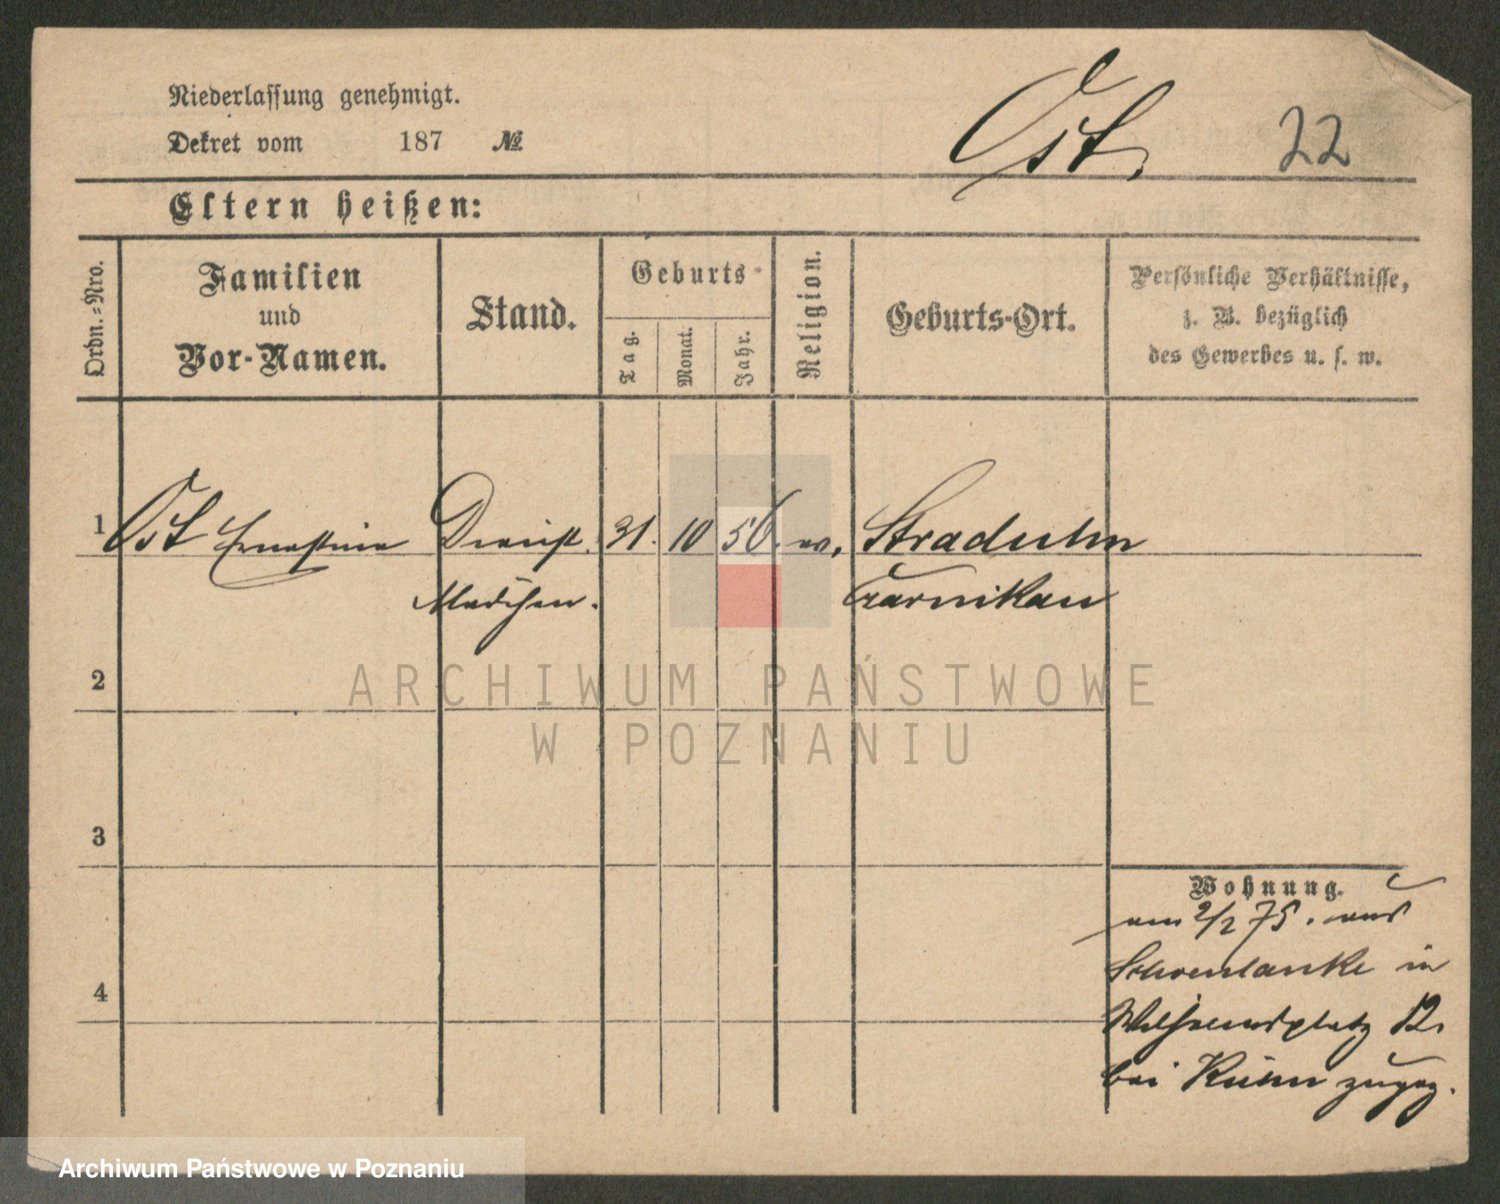 Niederlassung genehmigt.
Dekret vom 187 №
Ost, 22
Eltern heißen:
Ordn.-Nro.
Familien
und
Vor-Namen.
Stand.
Geburts-
Tag.
Monat.
Jahr.
Religion.
Geburts-Ort.
Persönliche Verhältnisse,
z. B. bezüglich
des Gewerbes u. s. w.
1 Ost Ernestine Dienst 31. 10 56. ev. Straduhn
Mädchen. Czarnikau
2
3
4
Wohnung.
am 2/2 75. aus
Schoenlanke in
Wilhelmsplatz 12.
bei zugez.
ARCHIWUM PAŃSTWOWE
W POZNANIU
Archiwum Państwowe w Poznaniu